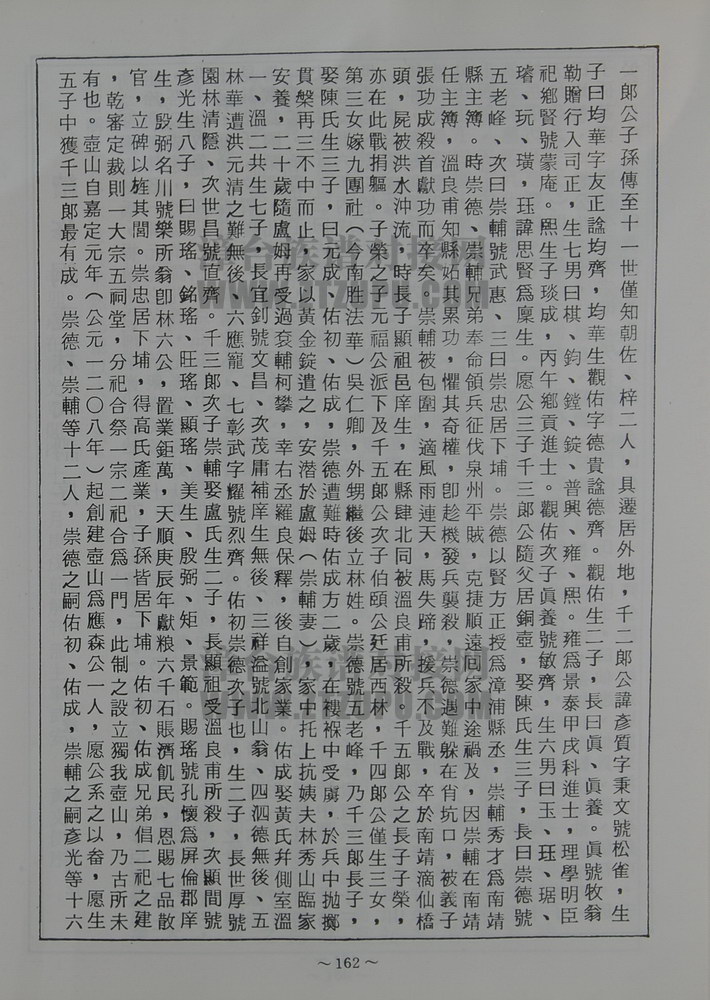 一郎公子孫傳至十一世僅知朝佐、梓二人，具遷居外地，千二郎公諱彥質字秉文號松雀，生
子曰均華字友正諡均齊，均華生觀佑字德貴諡德齊。觀佑生二子，長曰眞、眞養。眞號牧翁
勒贈行入司正，生七男曰棋、鈞、鏜、錠、普興、雍、熙。雍爲景泰甲戌科進士，理學明臣
祀鄉賢號蒙庵。熙生子琰成，丙午鄉貢進士。觀佑次子眞養號敏齊，生六男曰玉、珏、琚、
璿、玩、璜，珏諱思賢爲廩生。愿公三子千三郎公隨父居銅壺，娶陳氏生三子，長曰崇德號
五老峰、次曰崇輔號武惠、三曰崇忠居下埔。崇德以賢方正授爲漳浦縣丞，崇輔秀才爲南靖
縣主簿。時崇德、崇輔兄弟奉命領兵征伐泉州平賊，克捷順遠回家中途禍及，因崇輔在南靖
任主簿，溫良甫知縣妬其累功，懼其奇權，卽趁機發兵襲殺，崇德遇難躲在肖坑口，被義子
張功成殺首獻功而卒矣。崇輔被包圍，適風雨連天，馬失蹄，援兵不及戰，卒於南靖滴仙橋
頭，屍被洪水沖流，時長子顯祖邑庠生，在縣肆北同被溫良甫所殺。千五郎公之長子子榮，
亦在此戰捐軀。子榮之子元福公派下及千五郎公次子伯頤公廷居西林，千四郎公僅生三女，
第三女嫁九團社（今南胜法華）吳仁卿，外甥繼後立林姓。崇德號五老峰，乃千三郎長子，
娶陳氏生三子，曰元成、佑初、佑成，崇德遭難時佑成方二歲，在襁褓中受虜，於兵中拋擲
貫槃再三不中而止，家以黃金錠遣之，安潛於盧姆（崇輔妻）家中托上抗姨夫林秀山臨家
安養，二十歲隨盧姆再受過袞輔柯攀，幸右丞羅良保釋，後自創家業。佑成娶黃氏幷側室溫
一、溫二共生七子，長宜釗號文昌、次茂庸補庠生無後、三祥溢號北山翁、四泗德無後、五
林華遭洪元清之難無後、六應寵、七彰武字耀號烈齊。佑初崇德次子也，生二子，長世厚號
園林清隱、次世昌號直齊。千三郎次子崇輔娶盧氏生二子，長顯祖受溫良甫所殺，次顯間號
彥光生八子，曰賜瑤、銘瑤、旺瑤、顯瑤、美生、殷弼、矩、景範。賜瑤號孔懷爲屏倫郡庠
生，殷弼名川號樂所翁卽林六公，置業鉅萬，天順庚辰年獻粮六千石賬濟飢民，恩賜七品散
官，立碑以旌其閭。崇忠居下埔，得高氏產業，子孫皆居下埔。佑初、佑成兄弟倡二祀之建
，乾審定裁則一大宗五祠堂，分祀合祭一宗二祀合爲一門，此制之設立獨我壺山，乃古所未
有也。壺山自嘉定元年（公元一二〇八年）起創建壺山爲應森公一人，愿公系之以畚，愿生
五子中獲千三郎最有成。崇德、崇輔等十二人，崇德之嗣佑初、佑成，崇輔之嗣彥光等十六
～162～